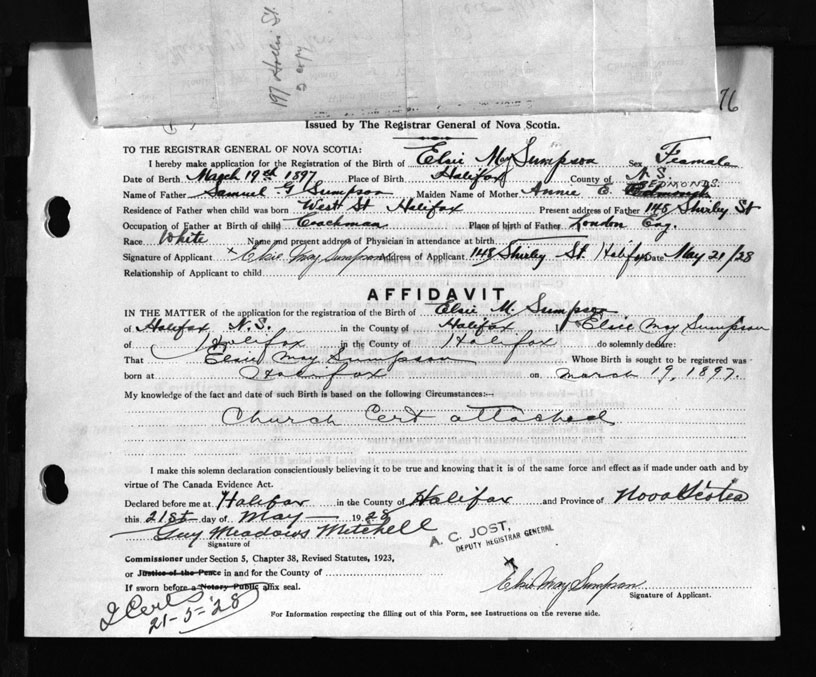 197 Hollis St.
2 copy
76
Issued by The Registrar General of Nova Scotia.
TO THE REGISTRAR GENERAL OF NOVA SCOTIA:
I hereby make application for the Registration of the Birth of Elsie May Sumpson Sex Feamale
Date of Birth March 19th 1897 Place of Birth Halifax County of N.S.
Name of Father Samuel G Sumpson Maiden Name of Mother Annie E. EDMONDS.
Residence of Father when child was born West St Halifax Present address of Father 148 Shirley St
Occupation of Father at Birth of child Coachman Place of birth of Father London Eng.
Race White Name and present address of Physician in attendance at birth
Signature of Applicant x Elsie May Sumpson Address of Applicant 148 Shirley St. Halifax Date May 21/28
Relationship of Applicant to child
AFFIDAVIT
IN THE MATTER of the application for the registration of the Birth of Elsie M. Sumpson
of Halifax N.S. in the County of Halifax I Elsie May Sumpson
of Halifax in the County of Halifax do solemnly declare:
That Elsie May Sumpson Whose Birth is sought to be registered was
born at Halifax on March 19, 1897.
My knowledge of the fact and date of such Birth is based on the following Circumstances:—
Church Cert attached
I make this solemn declaration conscientiously believing it to be true and knowing that it is of the same force and effect as if made under oath and by
virtue of The Canada Evidence Act.
Declared before me at Halifax in the County of Halifax and Province of Nova Scotia
this 21st day of May 1928
Guy Meadows Mitchell
Signature of
A. C. JOST,
DEPUTY REGISTRAR GENERAL
Commissioner under Section 5, Chapter 38, Revised Statutes, 1923,
or Justice of the Peace in and for the County of
x
If sworn before a Notary Public affix seal.
Elsie May Sumpson
Signature of Applicant.
2 Certs
21-5-28
For Information respecting the filling out of this Form, see Instructions on the reverse side.